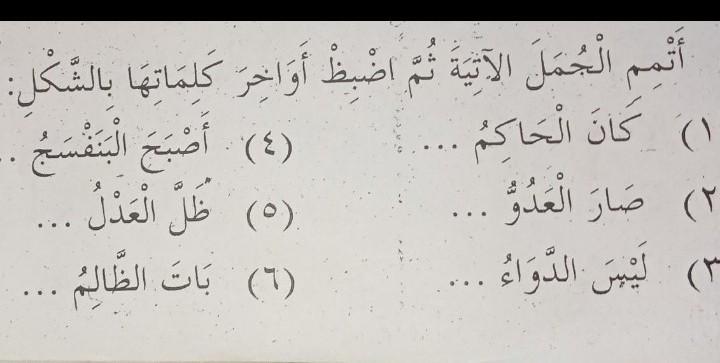 أَتْمِمِ الْجُمَلَ الآتِيَةَ ثُمَّ اضْبِطْ أَوَاخِرَ كَلِمَاتِهَا بِالشَّكْلِ:
(١) كَانَ الْحَاكِمُ ... (٤) أَصْبَحَ الْبَنَفْسَجُ ..
(٢) صَارَ الْعَدُوُّ ... (٥) ظَلَّ الْعَدْلُ ...
(٣) لَيْسَ الدَّوَاءُ ... (٦) بَاتَ الظَّالِمُ ...